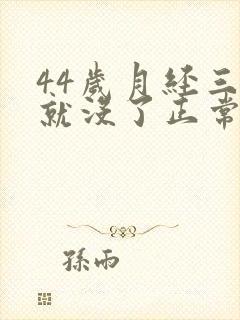 44歲月经三
就没了正常
孫雨